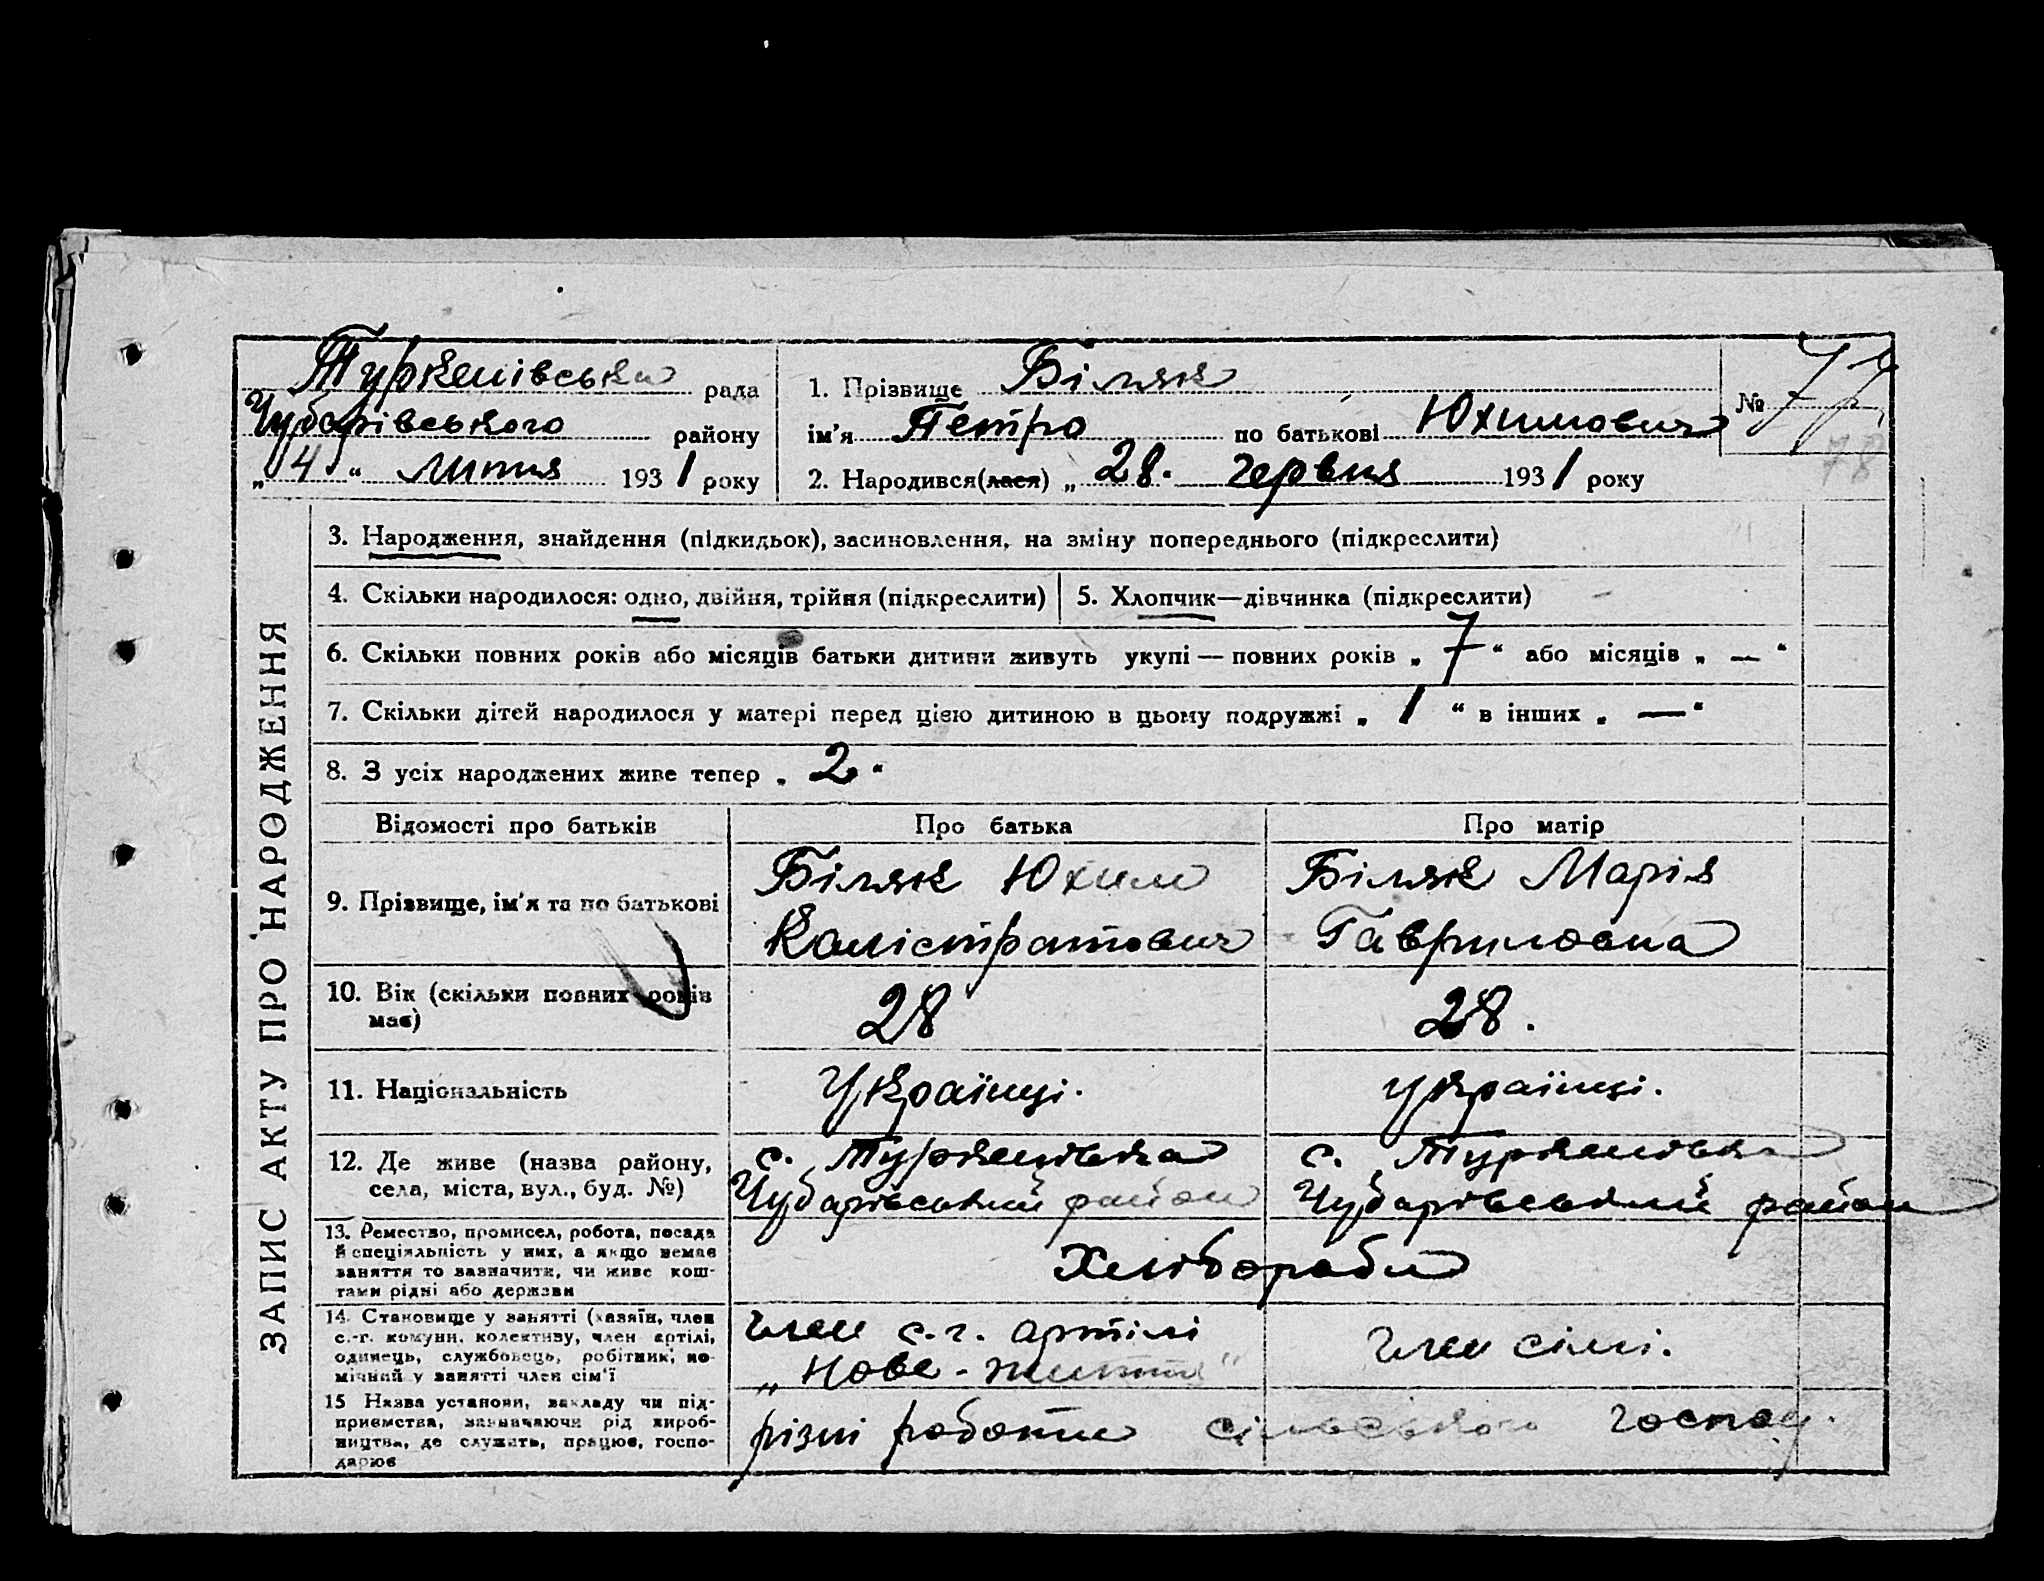 Туркенівська рада
Чубарівського району
„ 4 “ липня 1931 року
1. Прізвище Біляк
ім'я Петро по батькові Юхимович
№ 77
78
2. Народився(лася) „ 28. червня 1931 року
ЗАПИС АКТУ ПРО НАРОДЖЕННЯ
3. Народження, знайдення (підкидьок), засиновлення, на зміну попереднього (підкреслити)
4. Скільки народилося: одно, двійня, трійня (підкреслити)
5. Хлопчик—дівчинка (підкреслити)
6. Скільки повних років або місяців батьки дитини живуть укупі — повних років „ 7 “ або місяців „ — “
7. Скільки дітей народилося у матері перед цією дитиною в цьому подружжі „ 1 “ в інших „ — “
8. З усіх народжених живе тепер „ 2 “
Відомості про батьків
Про батька
Про матір
9. Прізвище, ім'я та по батькові
Біляк Юхим
Калістратович
Біляк Марія
Гавриловна
10. Вік (скільки повних років
має)
28
28.
11. Національність
Українці.
українці.
12. Де живе (назва району,
села, міста, вул., буд. №)
с. Туркенівка
Чубарівський район
с. Туркенівка
Чубарівський район
13. Ремество, промисел, робота, посада
й спеціяльність у них, а якщо немає
заняття то зазначити, чи живе кош-
тами рідні або держави
Хлібораби
14. Становище у занятті (хазяїн, член
с.-г. комуни, колективу, член артілі,
одинець, службовець, робітник, по-
мічний у занятті член сім'ї
член с.г. артілі
„Нове-життя“
член сімі.
15 Назва установи, закладу чи під-
приємства, зазначаючи рід вироб-
ництва, де служить, працює, госпо-
дарює
різні работи сільського господ.